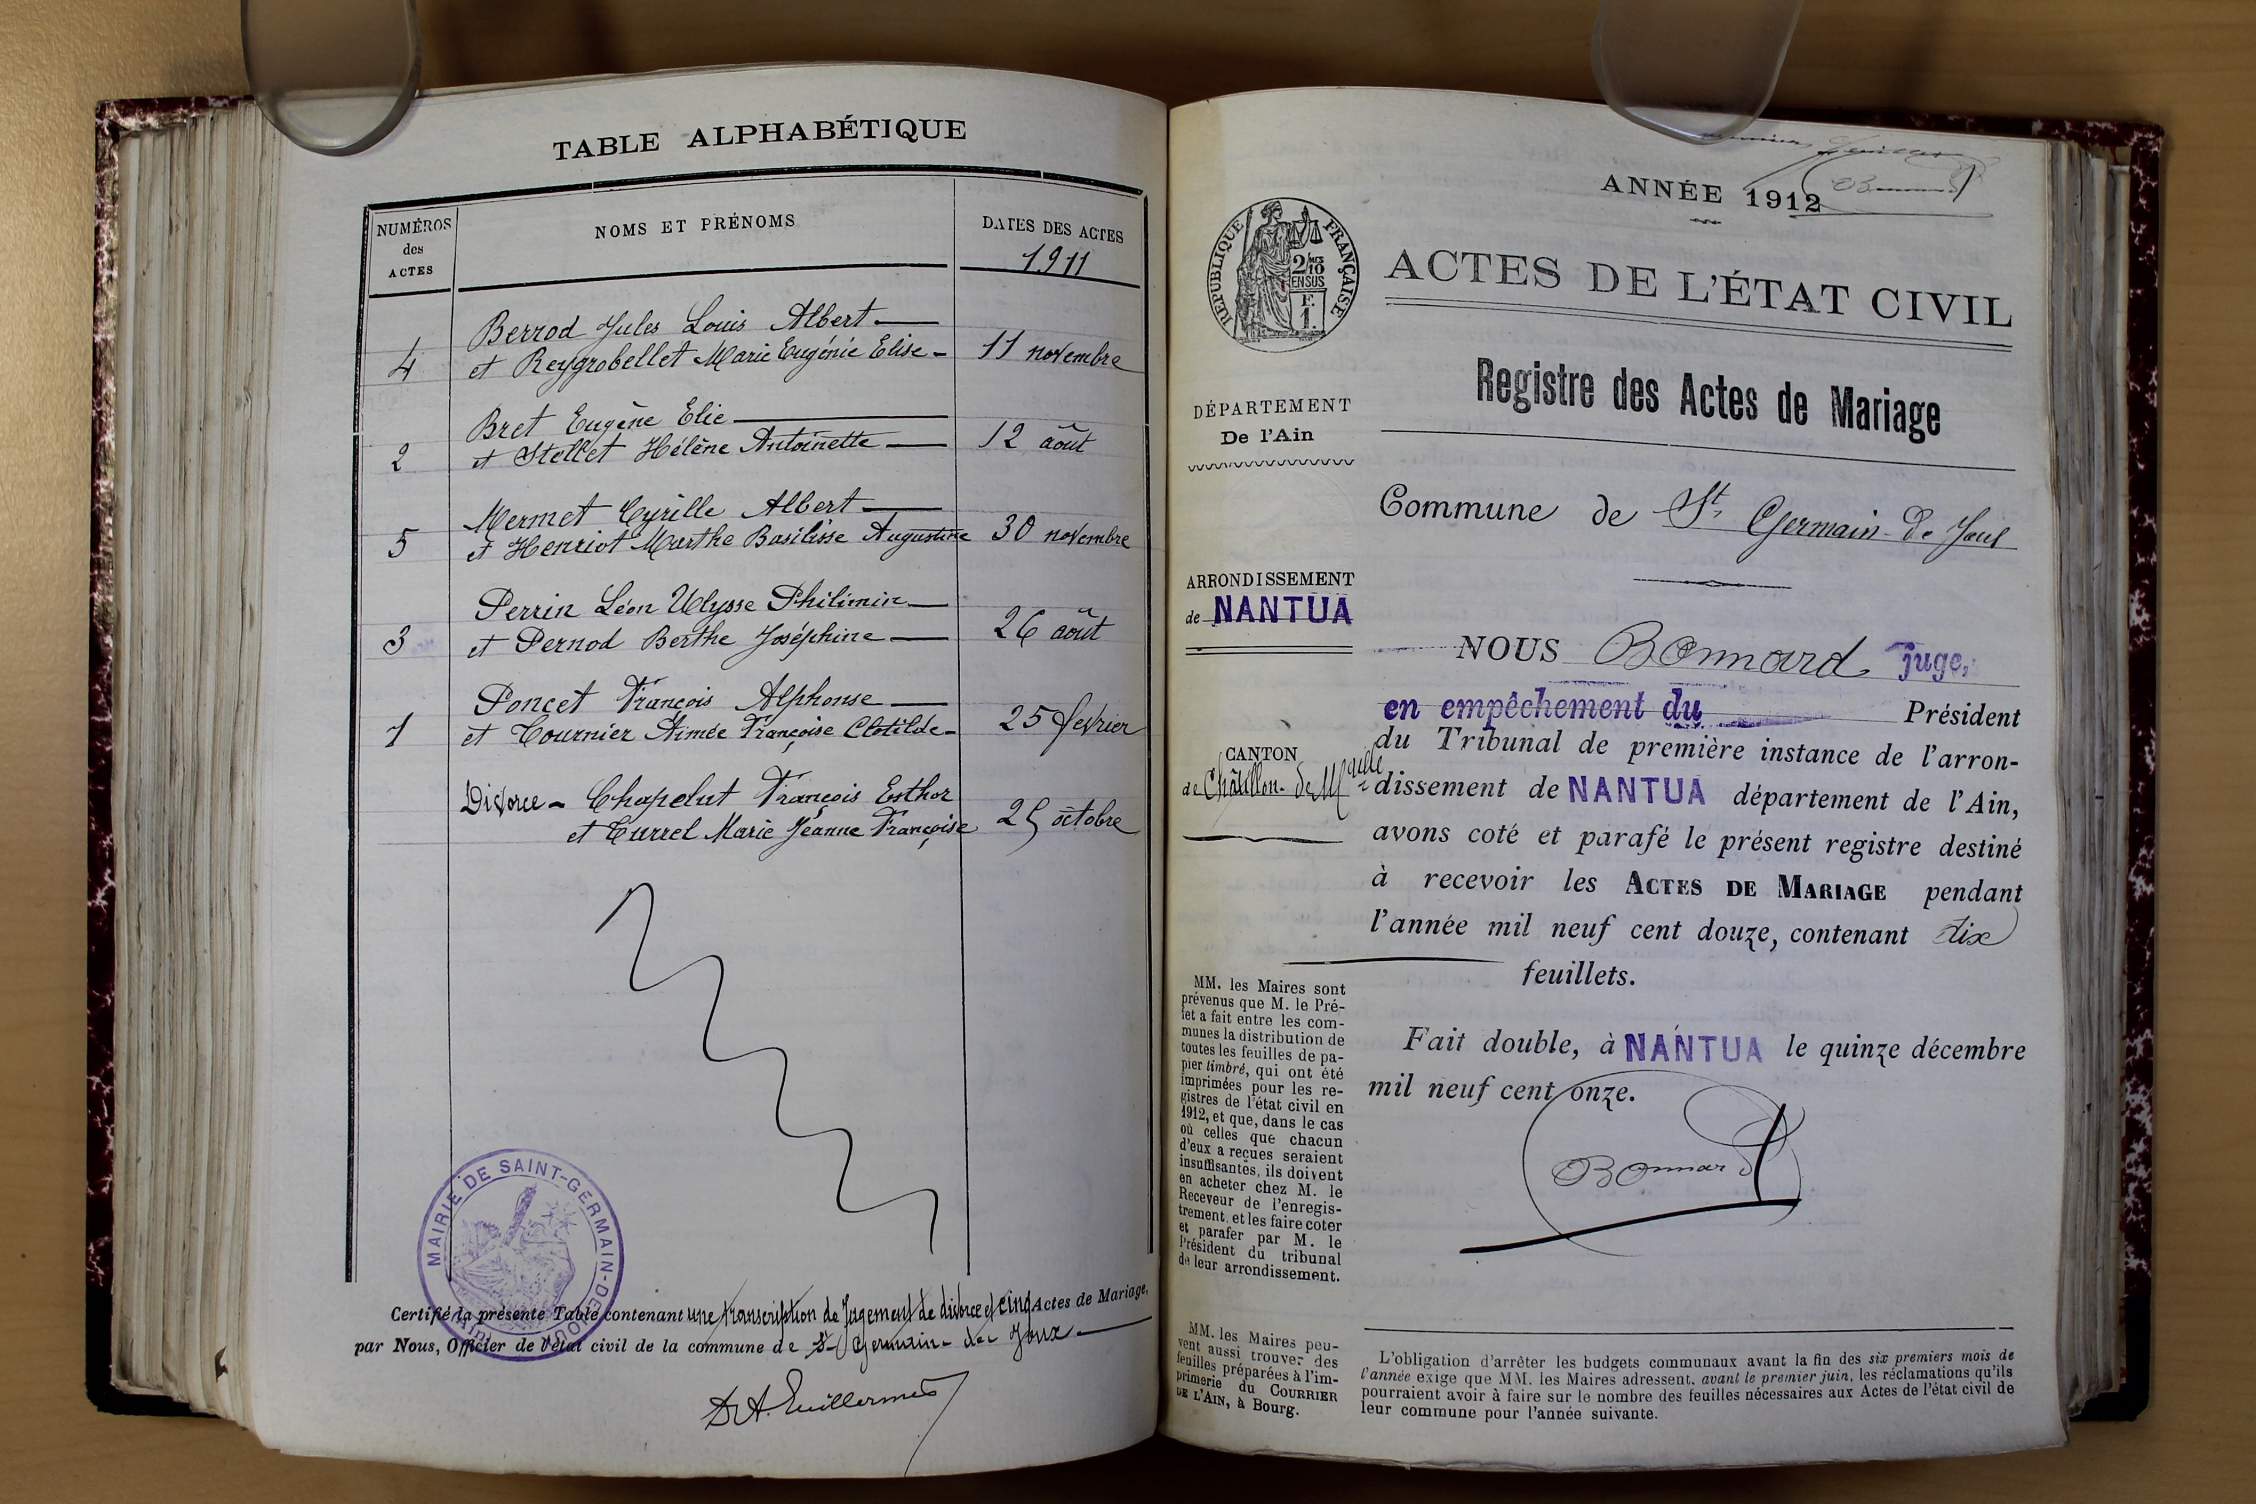 TABLE ALPHABÉTIQUE
NUMÉROS
des
ACTES
NOMS ET PRÉNOMS
DATES DES ACTES
1911
Berrod Jules Louis Albert
4 et Reygrobellet Marie Eugénie Elise - 11 novembre
Bret Eugène Elie
2 et Stellet Hélène Antoinette 12 août
Mermet Cyrille Albert
5 et Henriot Marthe Basilisse Augustine 30 novembre
Perrin Léon Ulysse Philimin
3 et Pernod Berthe Joséphine 26 août
Poncet François Alphonse
1 et Tournier Aimée Françoise Clotilde - 25 fevrier
Divorce - Chapelut François Esther
et Currel Marie Jeanne Françoise 25 octobre
MAIRIE DE SAINT-GERMAIN-DE-JOUX
(Ain)
Certifié la présente Table contenant une transcription de Jugement de divorce et cinq Actes de Mariage,
par Nous, Officier de l'état civil de la commune de St Germain-de-Joux
Dr A. Guillermet
ANNÉE 1912
RÉPUBLIQUE FRANÇAISE
2/10
EN SUS
F.
1.
ACTES DE L'ÉTAT CIVIL
Registre des Actes de Mariage
DÉPARTEMENT
De l'Ain
Commune de St. Germain-De Joux
ARRONDISSEMENT
de NANTUA
CANTON
de Châtillon-de-Mlle
NOUS Bonnard juge,
en empêchement du Président
du Tribunal de première instance de l'arron-
dissement de NANTUA département de l'Ain,
avons coté et parafé le présent registre destiné
à recevoir les ACTES DE MARIAGE pendant
l'année mil neuf cent douze, contenant dix
feuillets.
Fait double, à NANTUA le quinze décembre
mil neuf cent onze.
Bonnard
MM. les Maires sont
prévenus que M. le Pré-
fet a fait entre les com-
munes la distribution de
toutes les feuilles de pa-
pier timbré, qui ont été
imprimées pour les re-
gistres de l'état civil en
1912, et que, dans le cas
où celles que chacun
d'eux a reçues seraient
insuffisantes, ils doivent
en acheter chez M. le
Receveur de l'enregis-
trement, et les faire coter
et parafer par M. le
Président du tribunal
de leur arrondissement.
MM. les Maires peu-
vent aussi trouver des
feuilles préparées à l'im-
primerie du COURRIER
DE L'AIN, à Bourg.
L'obligation d'arrêter les budgets communaux avant la fin des six premiers mois de
l'année exige que MM. les Maires adressent, avant le premier juin, les réclamations qu'ils
pourraient avoir à faire sur le nombre des feuilles nécessaires aux Actes de l'état civil de
leur commune pour l'année suivante.